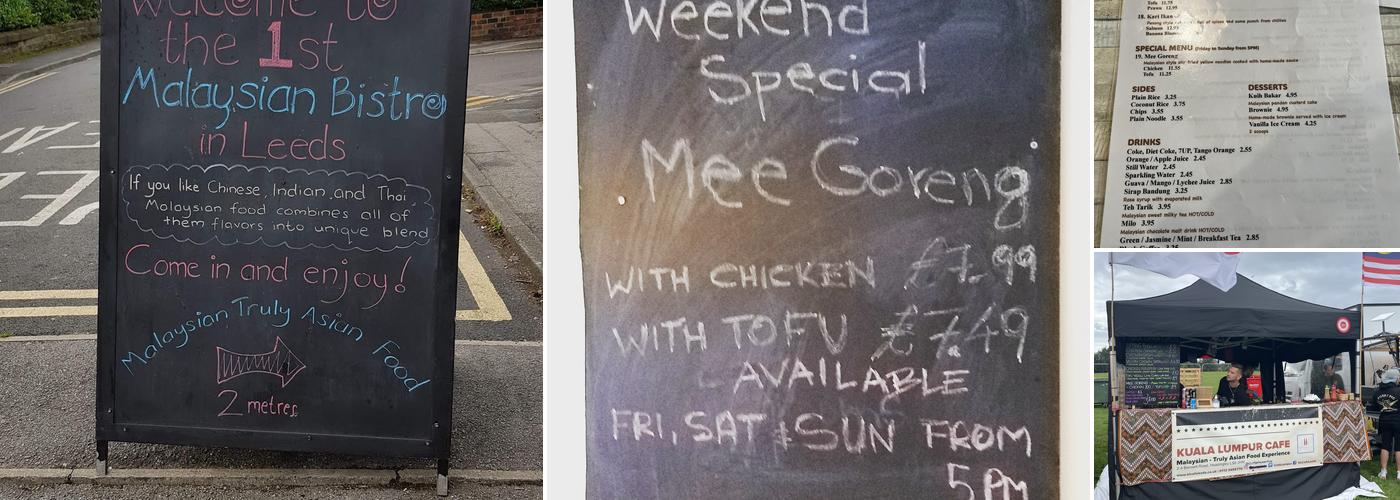 Welcome to
the 1st
Malaysian Bistro
in Leeds
If you like Chinese, Indian and Thai,
Malaysian food combines all of
them flavors into unique blend
Come in and enjoy!
Malaysian Truly Asian Food
2 metres
Weekend
Special
Mee Goreng
WITH CHICKEN £7.99
WITH TOFU £7.49
AVAILABLE
FRI, SAT & SUN FROM
5PM
Tofu 11.75
Prawn 12.95
18. Kari Ikan
Salmon
Banana
SPECIAL MENU (Friday to Sunday from 5PM)
19. Mee Goreng
Malaysian style stir fried yellow noodles cooked with home-made sauce
Chicken 11.55
Tofu 11.25
SIDES
Plain Rice 3.25
Coconut Rice 3.75
Chips 3.55
Plain Noodle 3.55
DESSERTS
Kuih Bakar 4.95
Malaysian pandan custard cake
Brownie 4.95
Home-made brownie served with ice cream
Vanilla Ice Cream 4.25
2 scoops
DRINKS
Coke, Diet Coke, 7UP, Tango Orange 2.55
Orange / Apple Juice 2.45
Still Water 2.45
Sparkling Water 2.45
Guava / Mango / Lychee Juice 2.85
Sirap Bandung 3.25
Rose syrup with evaporated milk
Teh Tarik 3.95
Malaysian sweet milky tea HOT/COLD
Milo 3.95
Malaysian chocolate malt drink HOT/COLD
Green / Jasmine / Mint / Breakfast Tea 2.85
KUALA LUMPUR CAFE
Malaysian - Truly Asian Food Experience